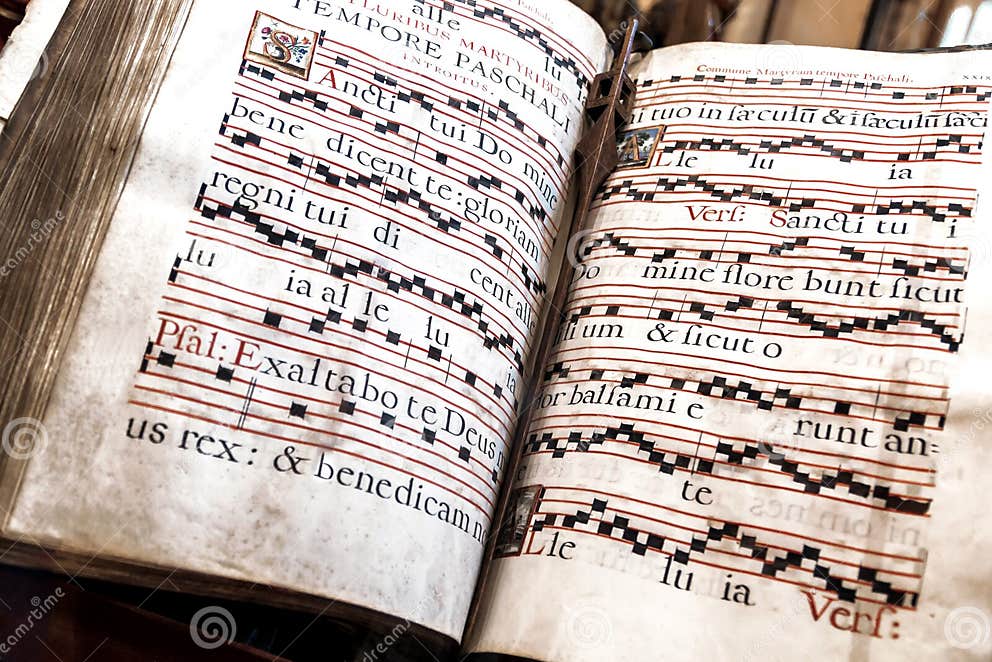 alle lu
PLURIBUS MARTYRIBUS
TEMPORE PASCHALI
INTROITUS.
SAncti tui Do mine
bene dicent te: gloriam
regni tui di cent alle
lu ia al le lu ia
Pſal: Exaltabo te Deus
us rex: & benedicam
Commune Martyrum tempore Paſchali.
tuo in ſæculū & i ſæculū ſæci
ALle lu ia
Verſ: Sancti tu i
Do mine flore bunt ſicut
li um & ſicut o
or balſami e runt an=
te
Lle lu ia Verſ:
dreamstime